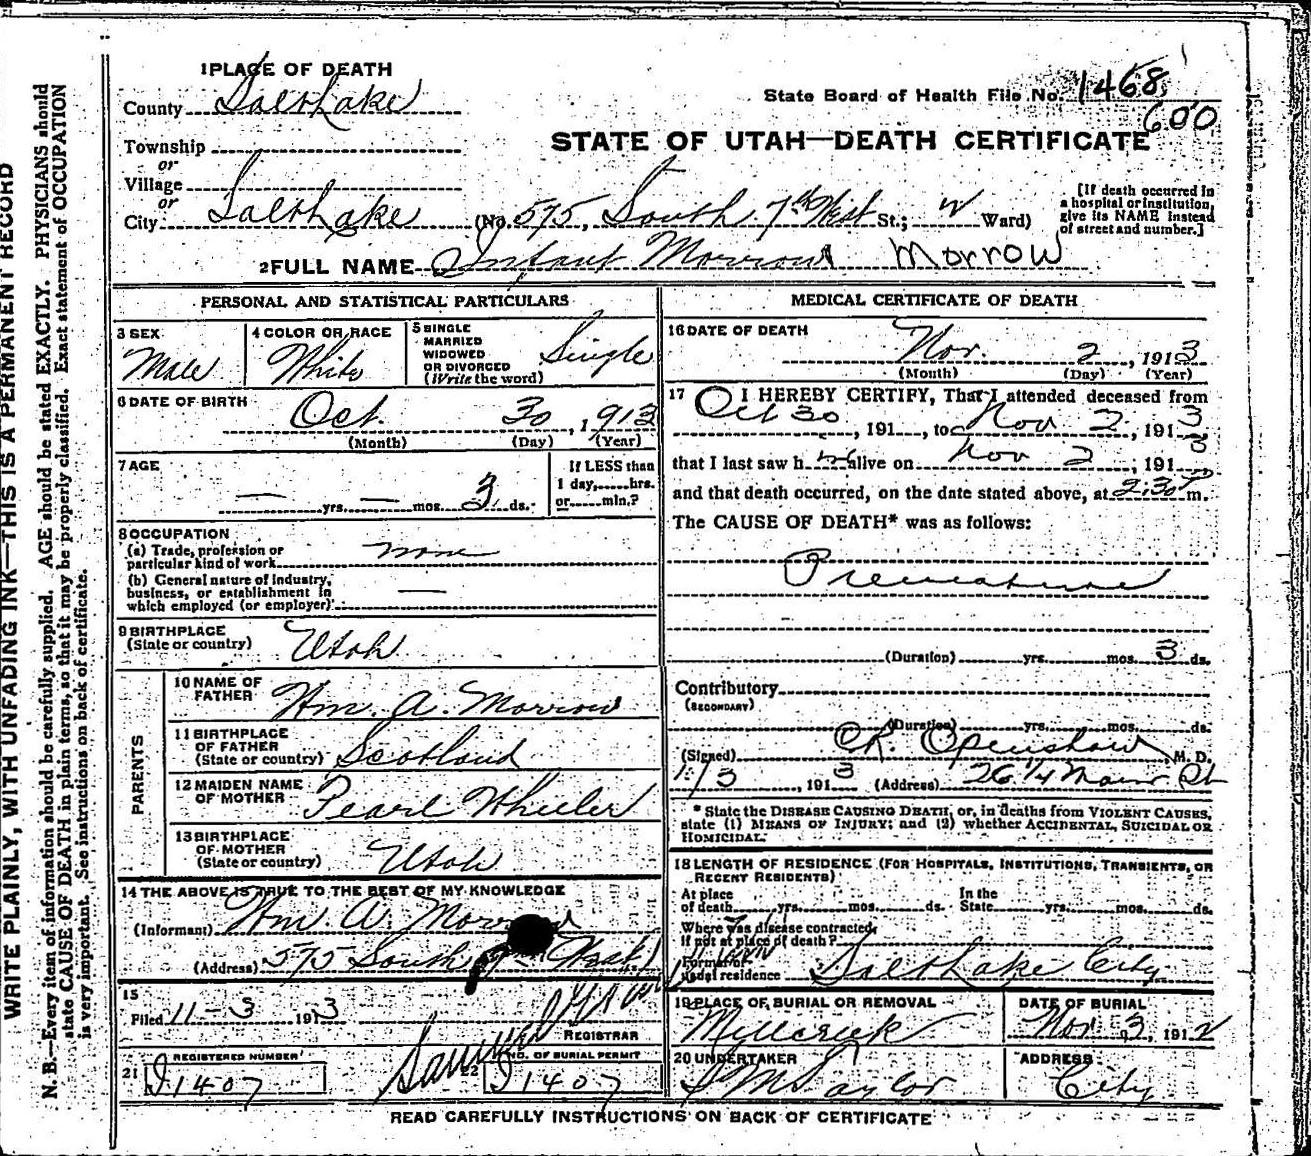 WRITE PLAINLY, WITH UNFADING INK—THIS IS A PERMANENT RECORD
N. B.—Every item of information should be carefully supplied. AGE should be stated EXACTLY. PHYSICIANS should
state CAUSE OF DEATH in plain terms, so that it may be properly classified. Exact statement of OCCUPATION
is very important. See instructions on back of certificate.
1 PLACE OF DEATH
County Salt Lake
State Board of Health File No. 1468
600
Township
or
Village
or
STATE OF UTAH—DEATH CERTIFICATE
City Salt Lake (No. 575, South 7th West St.; Ward)
[If death occurred in
a hospital or institution,
give its NAME instead
of street and number.]
2 FULL NAME Infant Morrow Morrow
PERSONAL AND STATISTICAL PARTICULARS
3 SEX
Male
4 COLOR OR RACE
White
5 SINGLE
MARRIED
WIDOWED
OR DIVORCED
(Write the word)
Single
6 DATE OF BIRTH
Oct. 30, 1913
(Month) (Day) (Year)
7 AGE
— yrs. — mos. 3 ds.
If LESS than
1 day, hrs.
or min.?
8 OCCUPATION
(a) Trade, profession or
particular kind of work none
(b) General nature of industry,
business, or establishment in
which employed (or employer) —
9 BIRTHPLACE
(State or country) Utah
PARENTS
10 NAME OF
FATHER Wm. A. Morrow
11 BIRTHPLACE
OF FATHER
(State or country) Scotland
12 MAIDEN NAME
OF MOTHER Pearl Wheeler
13 BIRTHPLACE
OF MOTHER
(State or country) Utah
14 THE ABOVE IS TRUE TO THE BEST OF MY KNOWLEDGE
(Informant) Wm. A. Morrow
(Address) 575 South 7 West
15
Filed 11-3 1913
REGISTRAR
REGISTERED NUMBER
21 I1407
NO. OF BURIAL PERMIT
22 I1407
MEDICAL CERTIFICATE OF DEATH
16 DATE OF DEATH
Nov. 2, 1913
(Month) (Day) (Year)
17 I HEREBY CERTIFY, That I attended deceased from
Oct 30, 191 , to Nov 2, 1913
that I last saw h im alive on Nov 2, 1913
and that death occurred, on the date stated above, at 2.30 P m.
The CAUSE OF DEATH* was as follows:
Premature
(Duration) yrs. mos. 3 ds.
Contributory
(SECONDARY)
(Duration) yrs. mos. ds.
(Signed) C.R. Openshaw, M. D.
11/3, 1913 (Address) 26 1/4 Main St
* State the DISEASE CAUSING DEATH, or, in deaths from VIOLENT CAUSES,
state (1) MEANS OF INJURY; and (2) whether ACCIDENTAL, SUICIDAL OR
HOMICIDAL.
18 LENGTH OF RESIDENCE (FOR HOSPITALS, INSTITUTIONS, TRANSIENTS, OR
RECENT RESIDENTS)
At place
of death yrs. mos. ds.
In the
State yrs. mos. ds.
Where was disease contracted,
if not at place of death?
Former or
usual residence Salt Lake City
19 PLACE OF BURIAL OR REMOVAL
Millcreek
DATE OF BURIAL
Nov 3, 1912
20 UNDERTAKER
S M Taylor
ADDRESS
City
READ CAREFULLY INSTRUCTIONS ON BACK OF CERTIFICATE